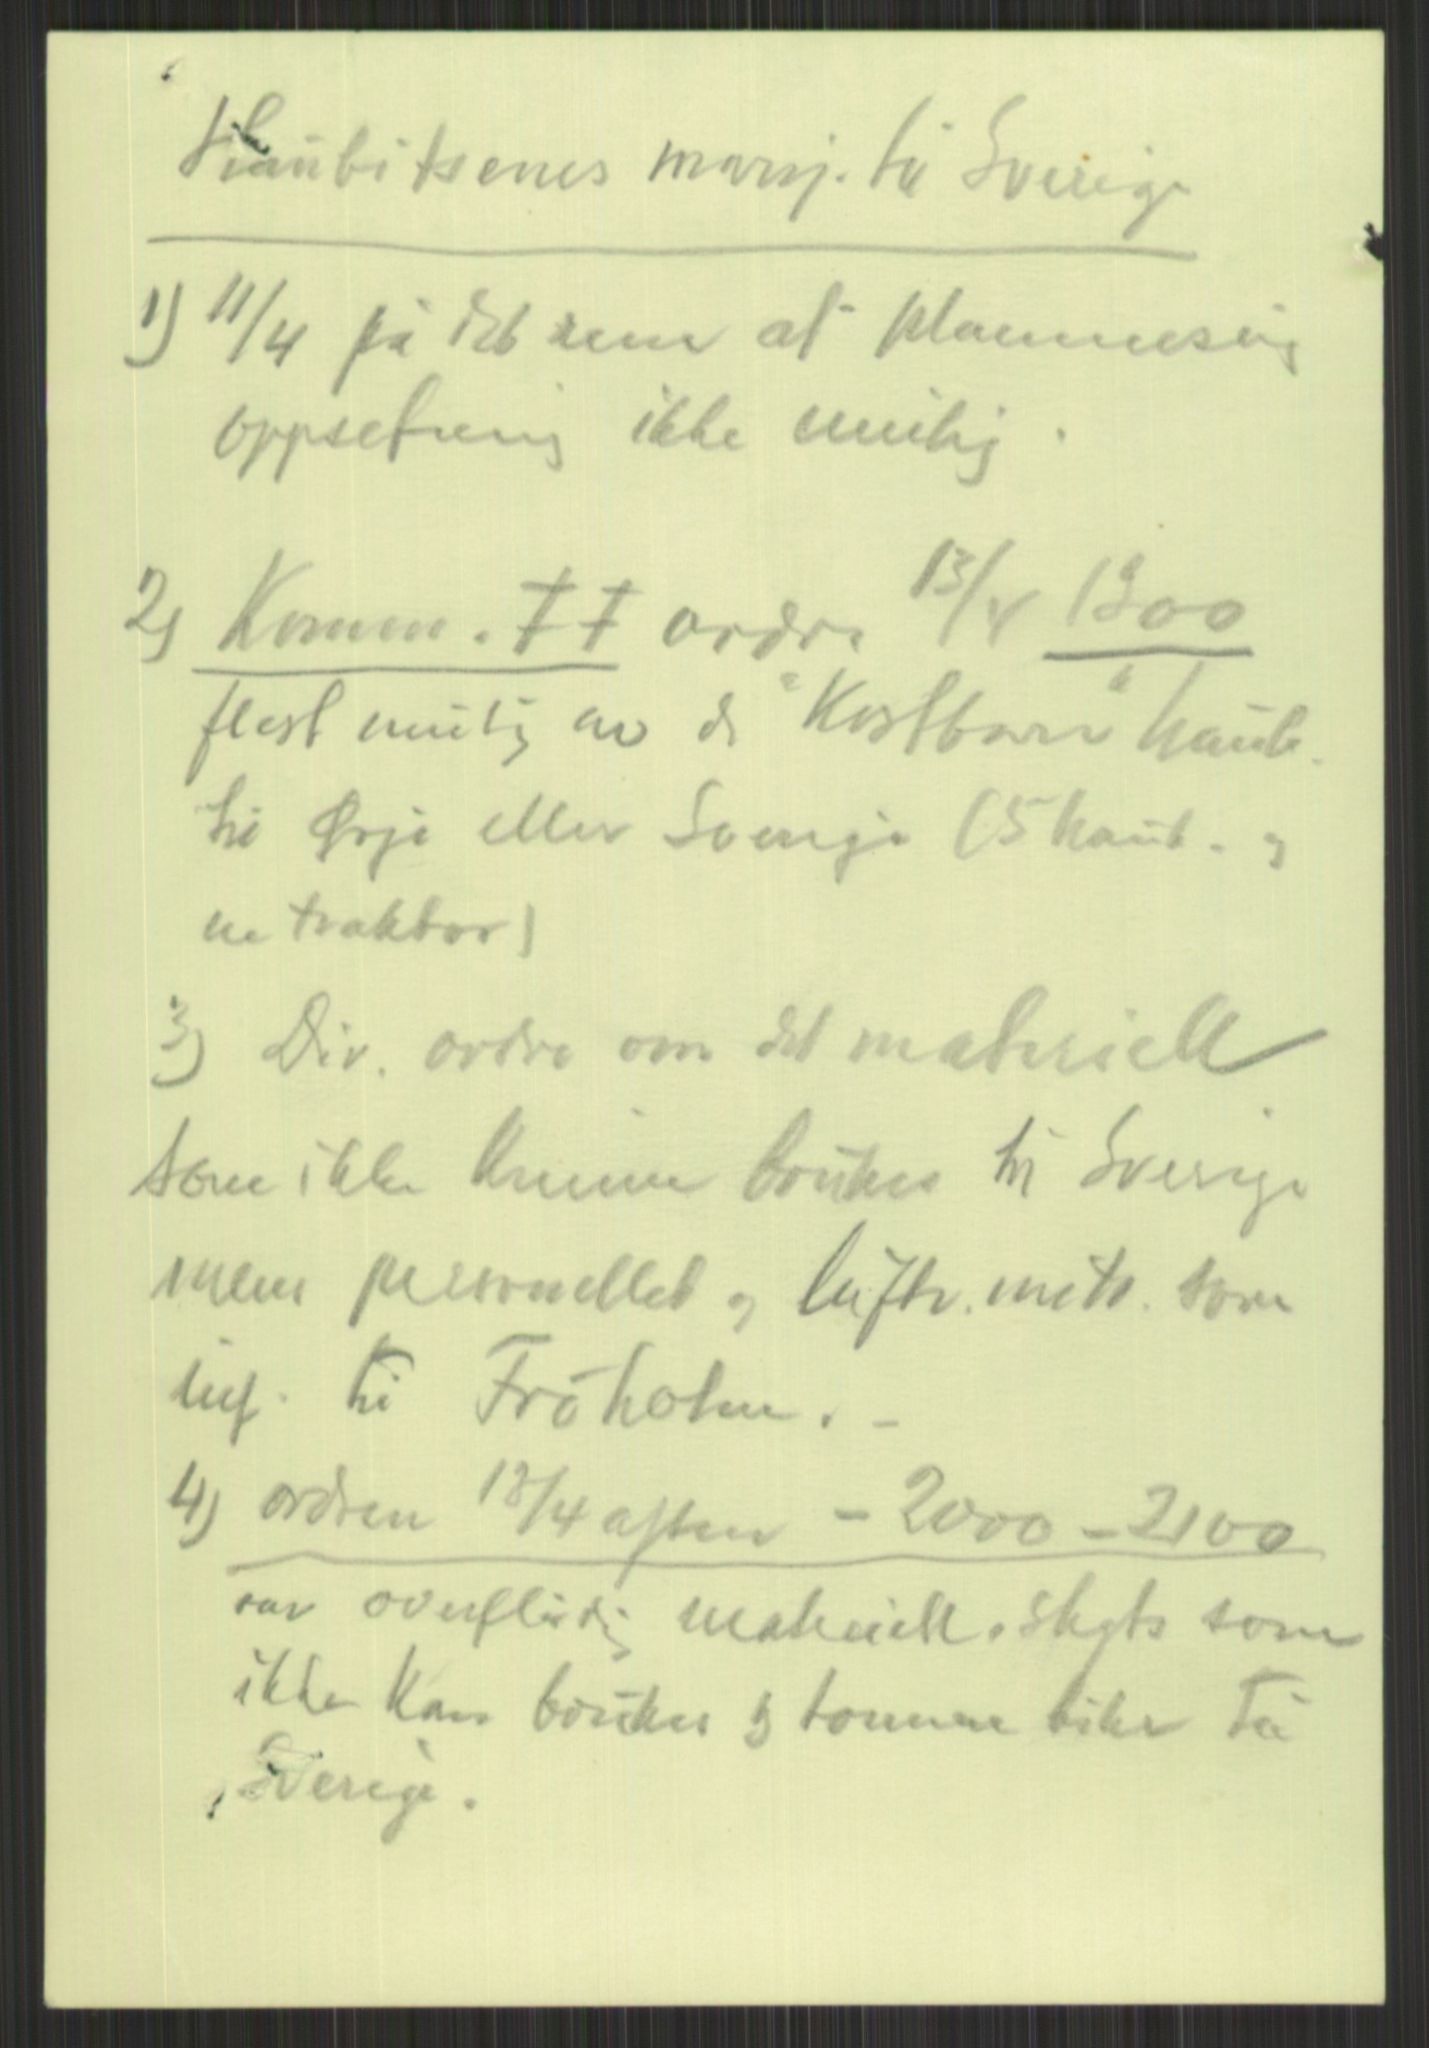 Haubitsenes marsj. til Sverige
1) 11/4 på det rene at planmessig
oppsetning ikke mulig.
2) Komm. FF ordre 13/4 1300
flest mulig av de "Kostbare" haub.
til Ørje eller Sverige (5 haub. og
en traktor)
3) Div. ordre om det materiell
som ikke kunne brukes til Sverige
men personellet og luftv. mitr. som
inf. til Fröholm. -
4) ordren 13/4 aften - 2000 - 2100
var overflødig materiell. skyts som
ikke kan brukes og tomme biler til
Sverige.